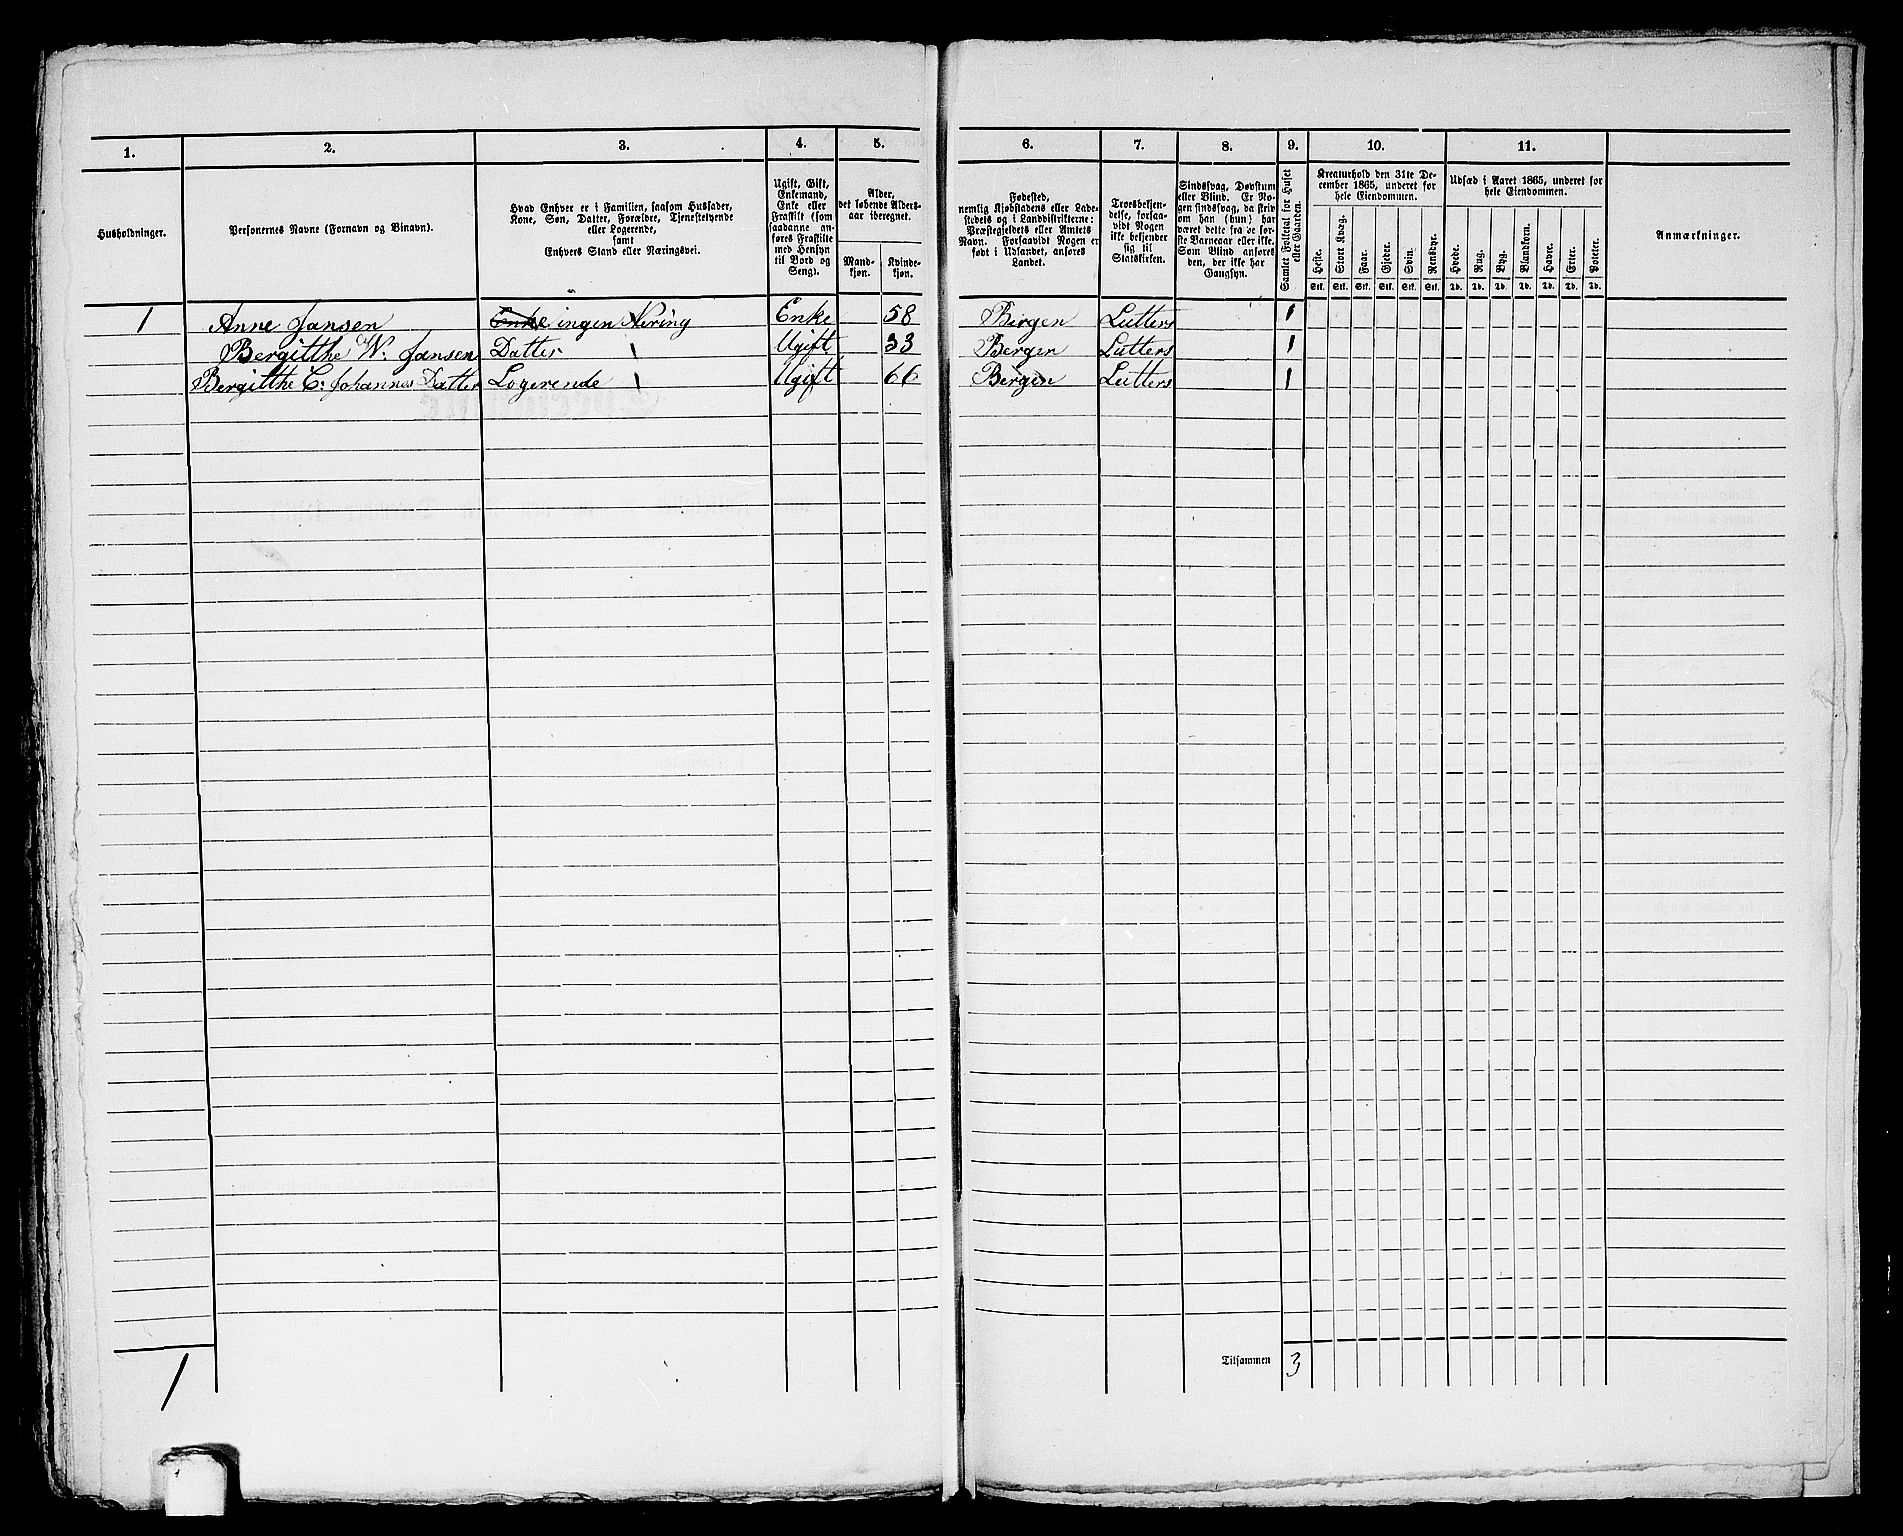 1.
2.
3.
4.
5.
6.
7.
8.
9.
10.
11.
Husholdninger.
Personernes Navne (Fornavn og Binavn).
Hvad Enhver er i Familien, saasom Husfader,
Kone, Søn, Datter, Forældre, Tjenestetyende
eller Logerende,
samt
Enhvers Stand eller Næringsvei.
Ugift, Gift,
Enkemand,
Enke eller
Fraskilt (som
saadanne an-
føres Fraskilte
med Hensyn
til Bord og
Seng).
Alder,
det løbende Alders-
aar iberegnet.
Mand-
kjøn.
Kvinde-
kjøn.
Fødested,
nemlig Kjøbstadens eller Lade-
stedets og i Landdistrikterne:
Præstegjeldets eller Amtets
Navn. Forsaavidt Nogen er
født i Udlandet, anføres
Landet.
Troesbekjen-
delse, forsaa-
vidt Nogen
ikke bekjender
sig til
Statskirken.
Sindssvag, Døvstum
eller Blind. Er No-
gen sindssvag, da skriv
om han (hun) har
været dette fra de før-
ste Barneaar eller ikke.
Som Blind anføres
den, der ikke har
Gangsyn.
Samlet Folketal for Huset
eller Gaarden.
Kreaturhold den 31te De-
cember 1865, underet for
hele Eiendommen.
Heste.
Stort Kvæg.
Faar.
Gjeder.
Svin.
Rensdyr.
Stk. Stk. Stk. Stk. Stk. Stk.
Udsæd i Aaret 1865, underet for
hele Eiendommen.
Hvede.
Rug.
Byg.
Blandkorn.
Havre.
Erter.
Poteter.
Td. Td. Td. Td. Td. Td. Td.
Anmærkninger.
1 Anne Jansen Enke ingen Nering Enke 58 Bergen Lutters 1
Bergitthe W. Jansen Datter 1 Ugift 33 Bergen Lutters 1
Bergitthe C: Johannes Datter Logerende 1 Ugift 66 Bergen Lutters 1
1 Tilsammen 3